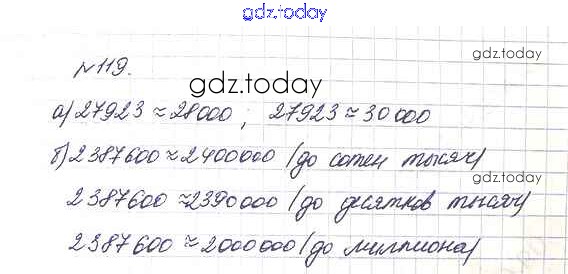 gdz.today
gdz.today
№119.
gdz.today
а) 27923 ≈ 28000; 27923 ≈ 30000
б) 2387600 ≈ 2400000 (до сотен тысяч)
gdz.today
2387600 ≈ 2390000 (до десятков тысяч)
2387600 ≈ 2000000 (до миллиона)